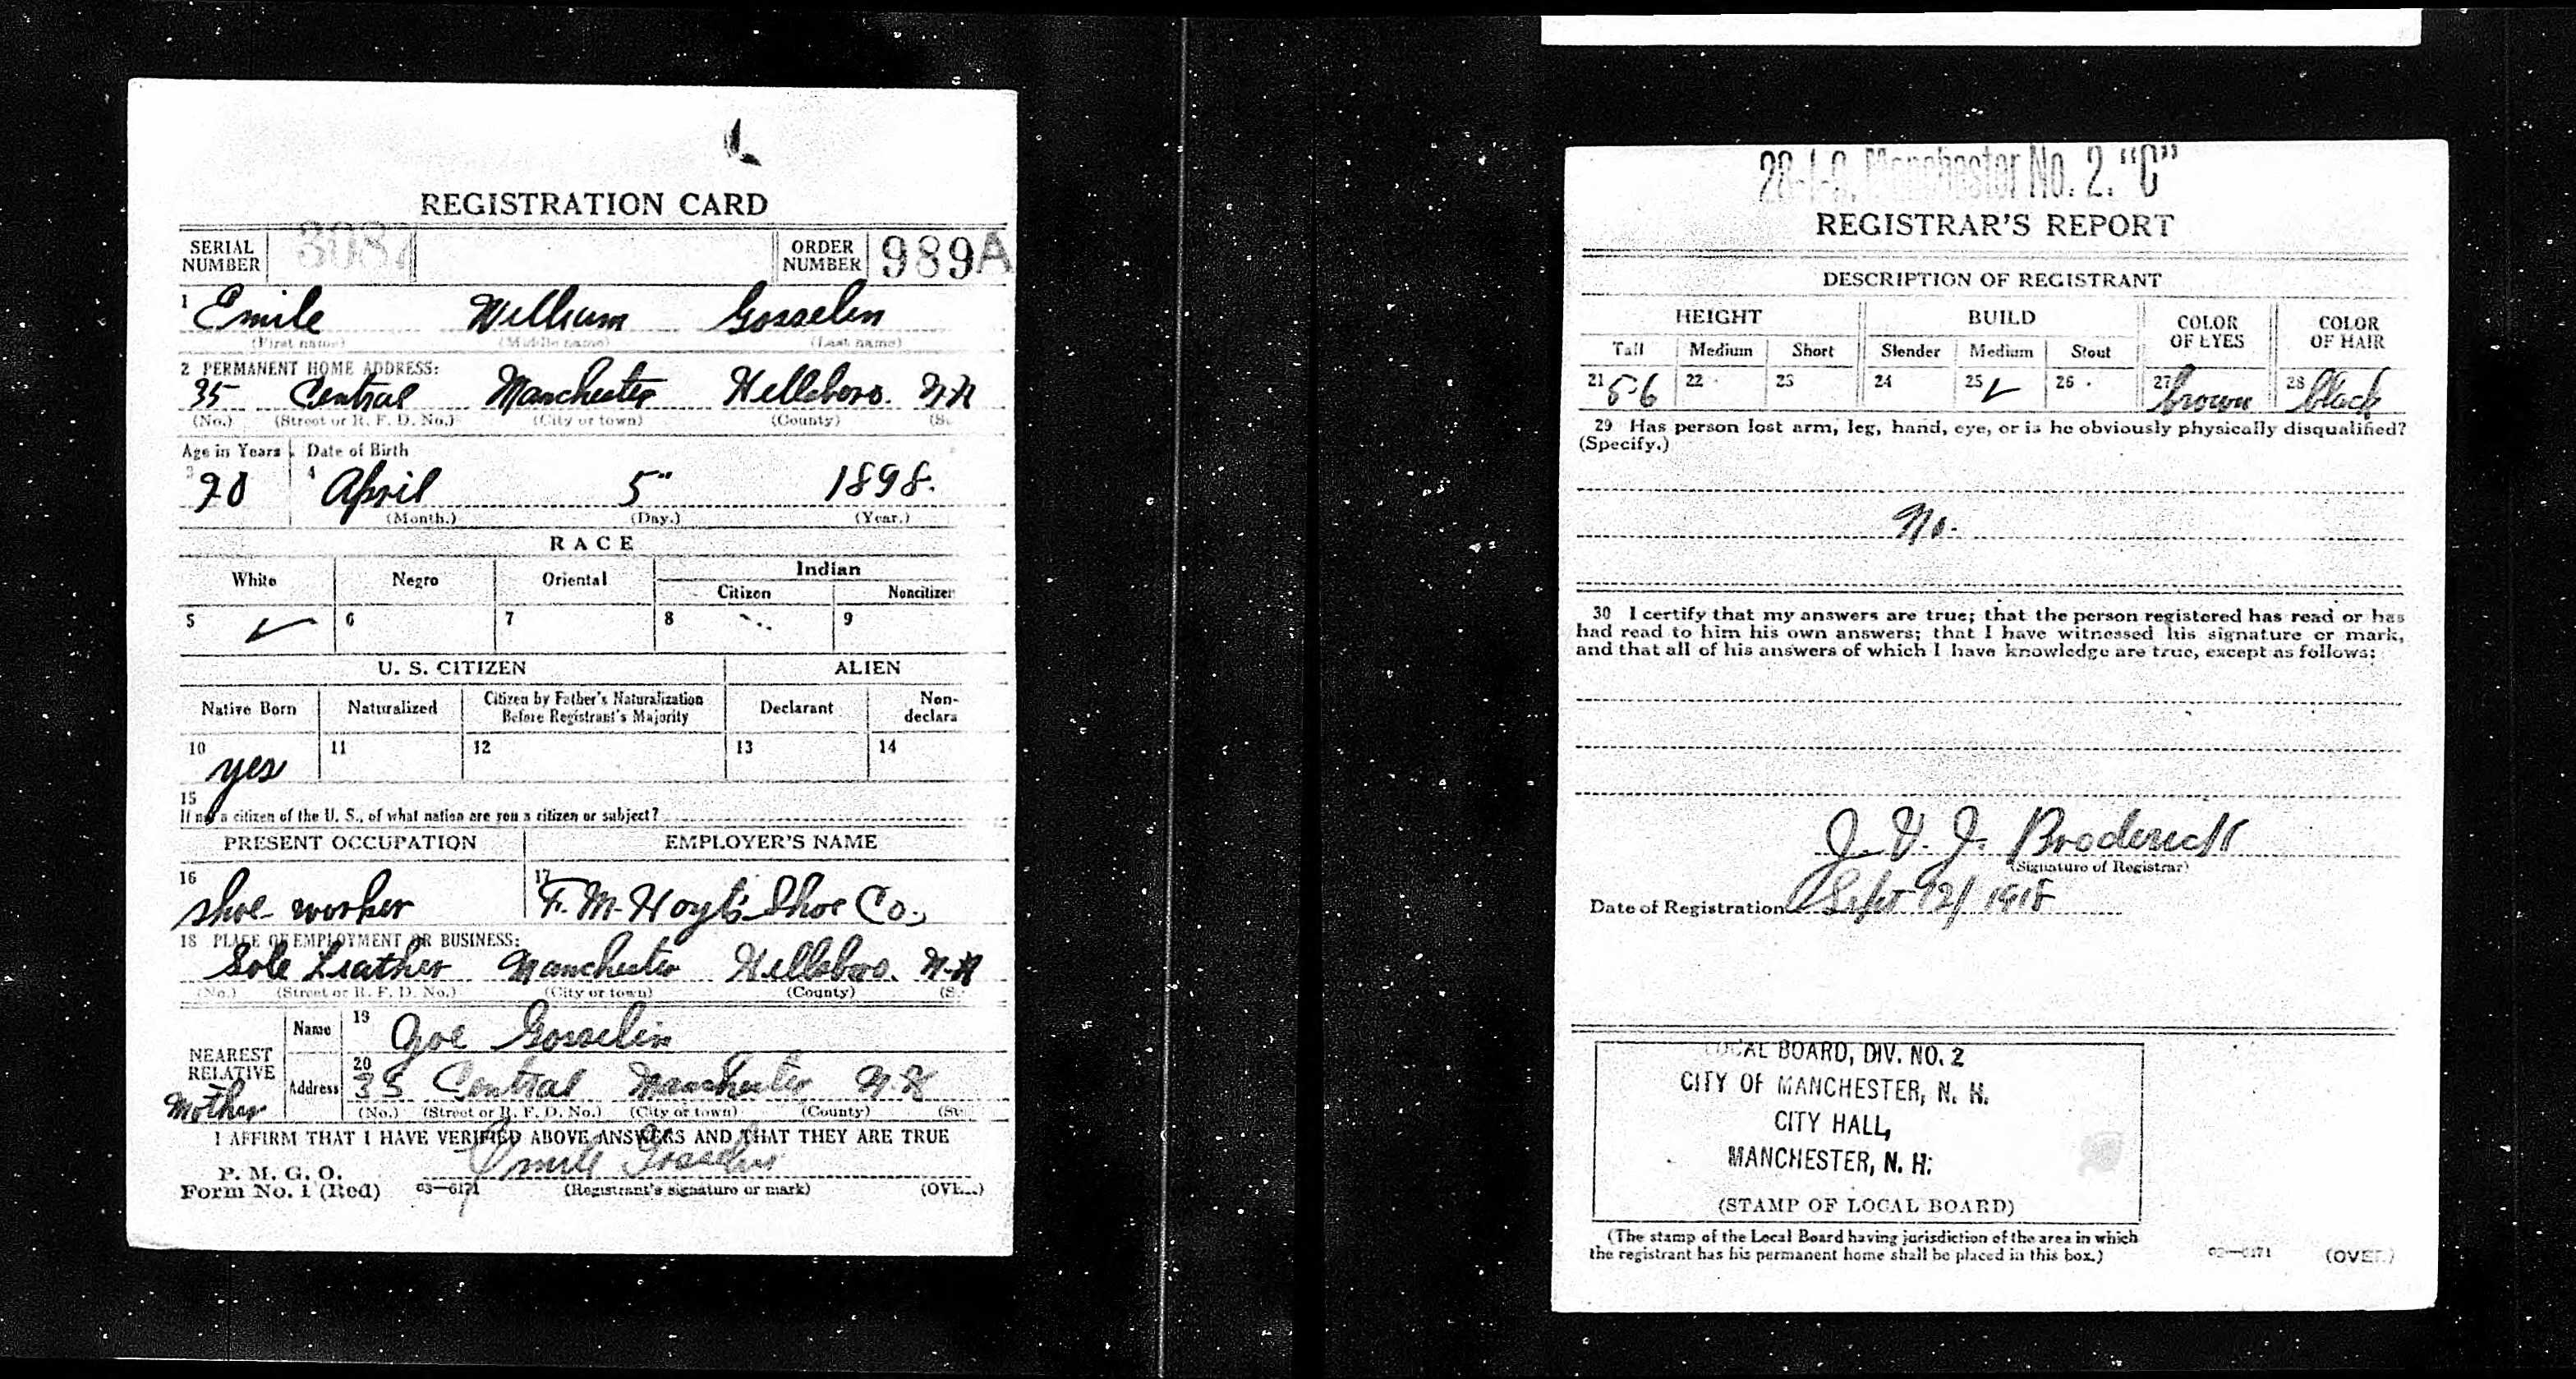 REGISTRATION CARD
SERIAL NUMBER 308 ORDER NUMBER 989A
1 Emile William Gosselin
(First name) (Middle name) (Last name)
2 PERMANENT HOME ADDRESS:
35 Central Manchester Hillsboro. N.H
(No.) (Street or R. F. D. No.) (City or town) (County) (S.
Age in Years Date of Birth
3 20 4 April 5" 1898.
(Month.) (Day.) (Year.)
RACE
White Negro Oriental Indian
Citizen Noncitizen
5 ✓ 6 7 8 9
U. S. CITIZEN ALIEN
Native Born Naturalized Citizen by Father's Naturalization Before Registrant's Majority Declarant Non-declara
10 yes 11 12 13 14
15
If not a citizen of the U. S., of what nation are you a citizen or subject?
PRESENT OCCUPATION EMPLOYER'S NAME
16 shoe worker 17 F. M. Hoyt Shoe Co.
18 PLACE OF EMPLOYMENT OR BUSINESS:
Sole Leather Manchester Hillsboro. N.H
(No.) (Street or R. F. D. No.) (City or town) (County) (S.
NEAREST RELATIVE Name 19 Joe Gosselin
Mother Address 20 35 Central Manchester N.H
(No.) (Street or R. F. D. No.) (City or town) (County) (St
I AFFIRM THAT I HAVE VERIFIED ABOVE ANSWERS AND THAT THEY ARE TRUE
P. M. G. O.
Form No. 1 (Red) 03—6171 Emile Gosselin
(Registrant's signature or mark) (OVER)
Manchester No. 2. "C"
REGISTRAR'S REPORT
DESCRIPTION OF REGISTRANT
HEIGHT BUILD COLOR OF EYES COLOR OF HAIR
Tall Medium Short Slender Medium Stout
21 5-6 22 23 24 25 ✓ 26 27 brown 28 black
29 Has person lost arm, leg, hand, eye, or is he obviously physically disqualified?
(Specify.)
No.
30 I certify that my answers are true; that the person registered has read or has
had read to him his own answers; that I have witnessed his signature or mark,
and that all of his answers of which I have knowledge are true, except as follows:
J. V. J. Broderick
(Signature of Registrar)
Date of Registration Sept 12/1918
LOCAL BOARD, DIV. NO. 2
CITY OF MANCHESTER, N. H.
CITY HALL,
MANCHESTER, N. H.
(STAMP OF LOCAL BOARD)
(The stamp of the Local Board having jurisdiction of the area in which
the registrant has his permanent home shall be placed in this box.)
03—6171 (OVER)